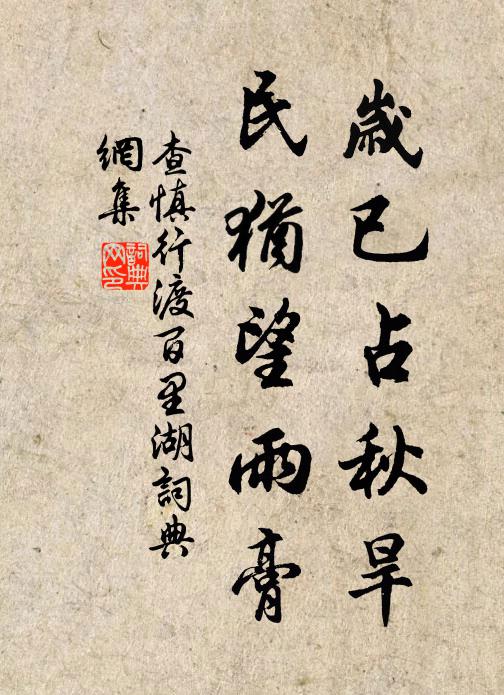 歲已占秋旱
民猶望雨膏
查慎行渡百里湖詞典
網集
詞典
网印